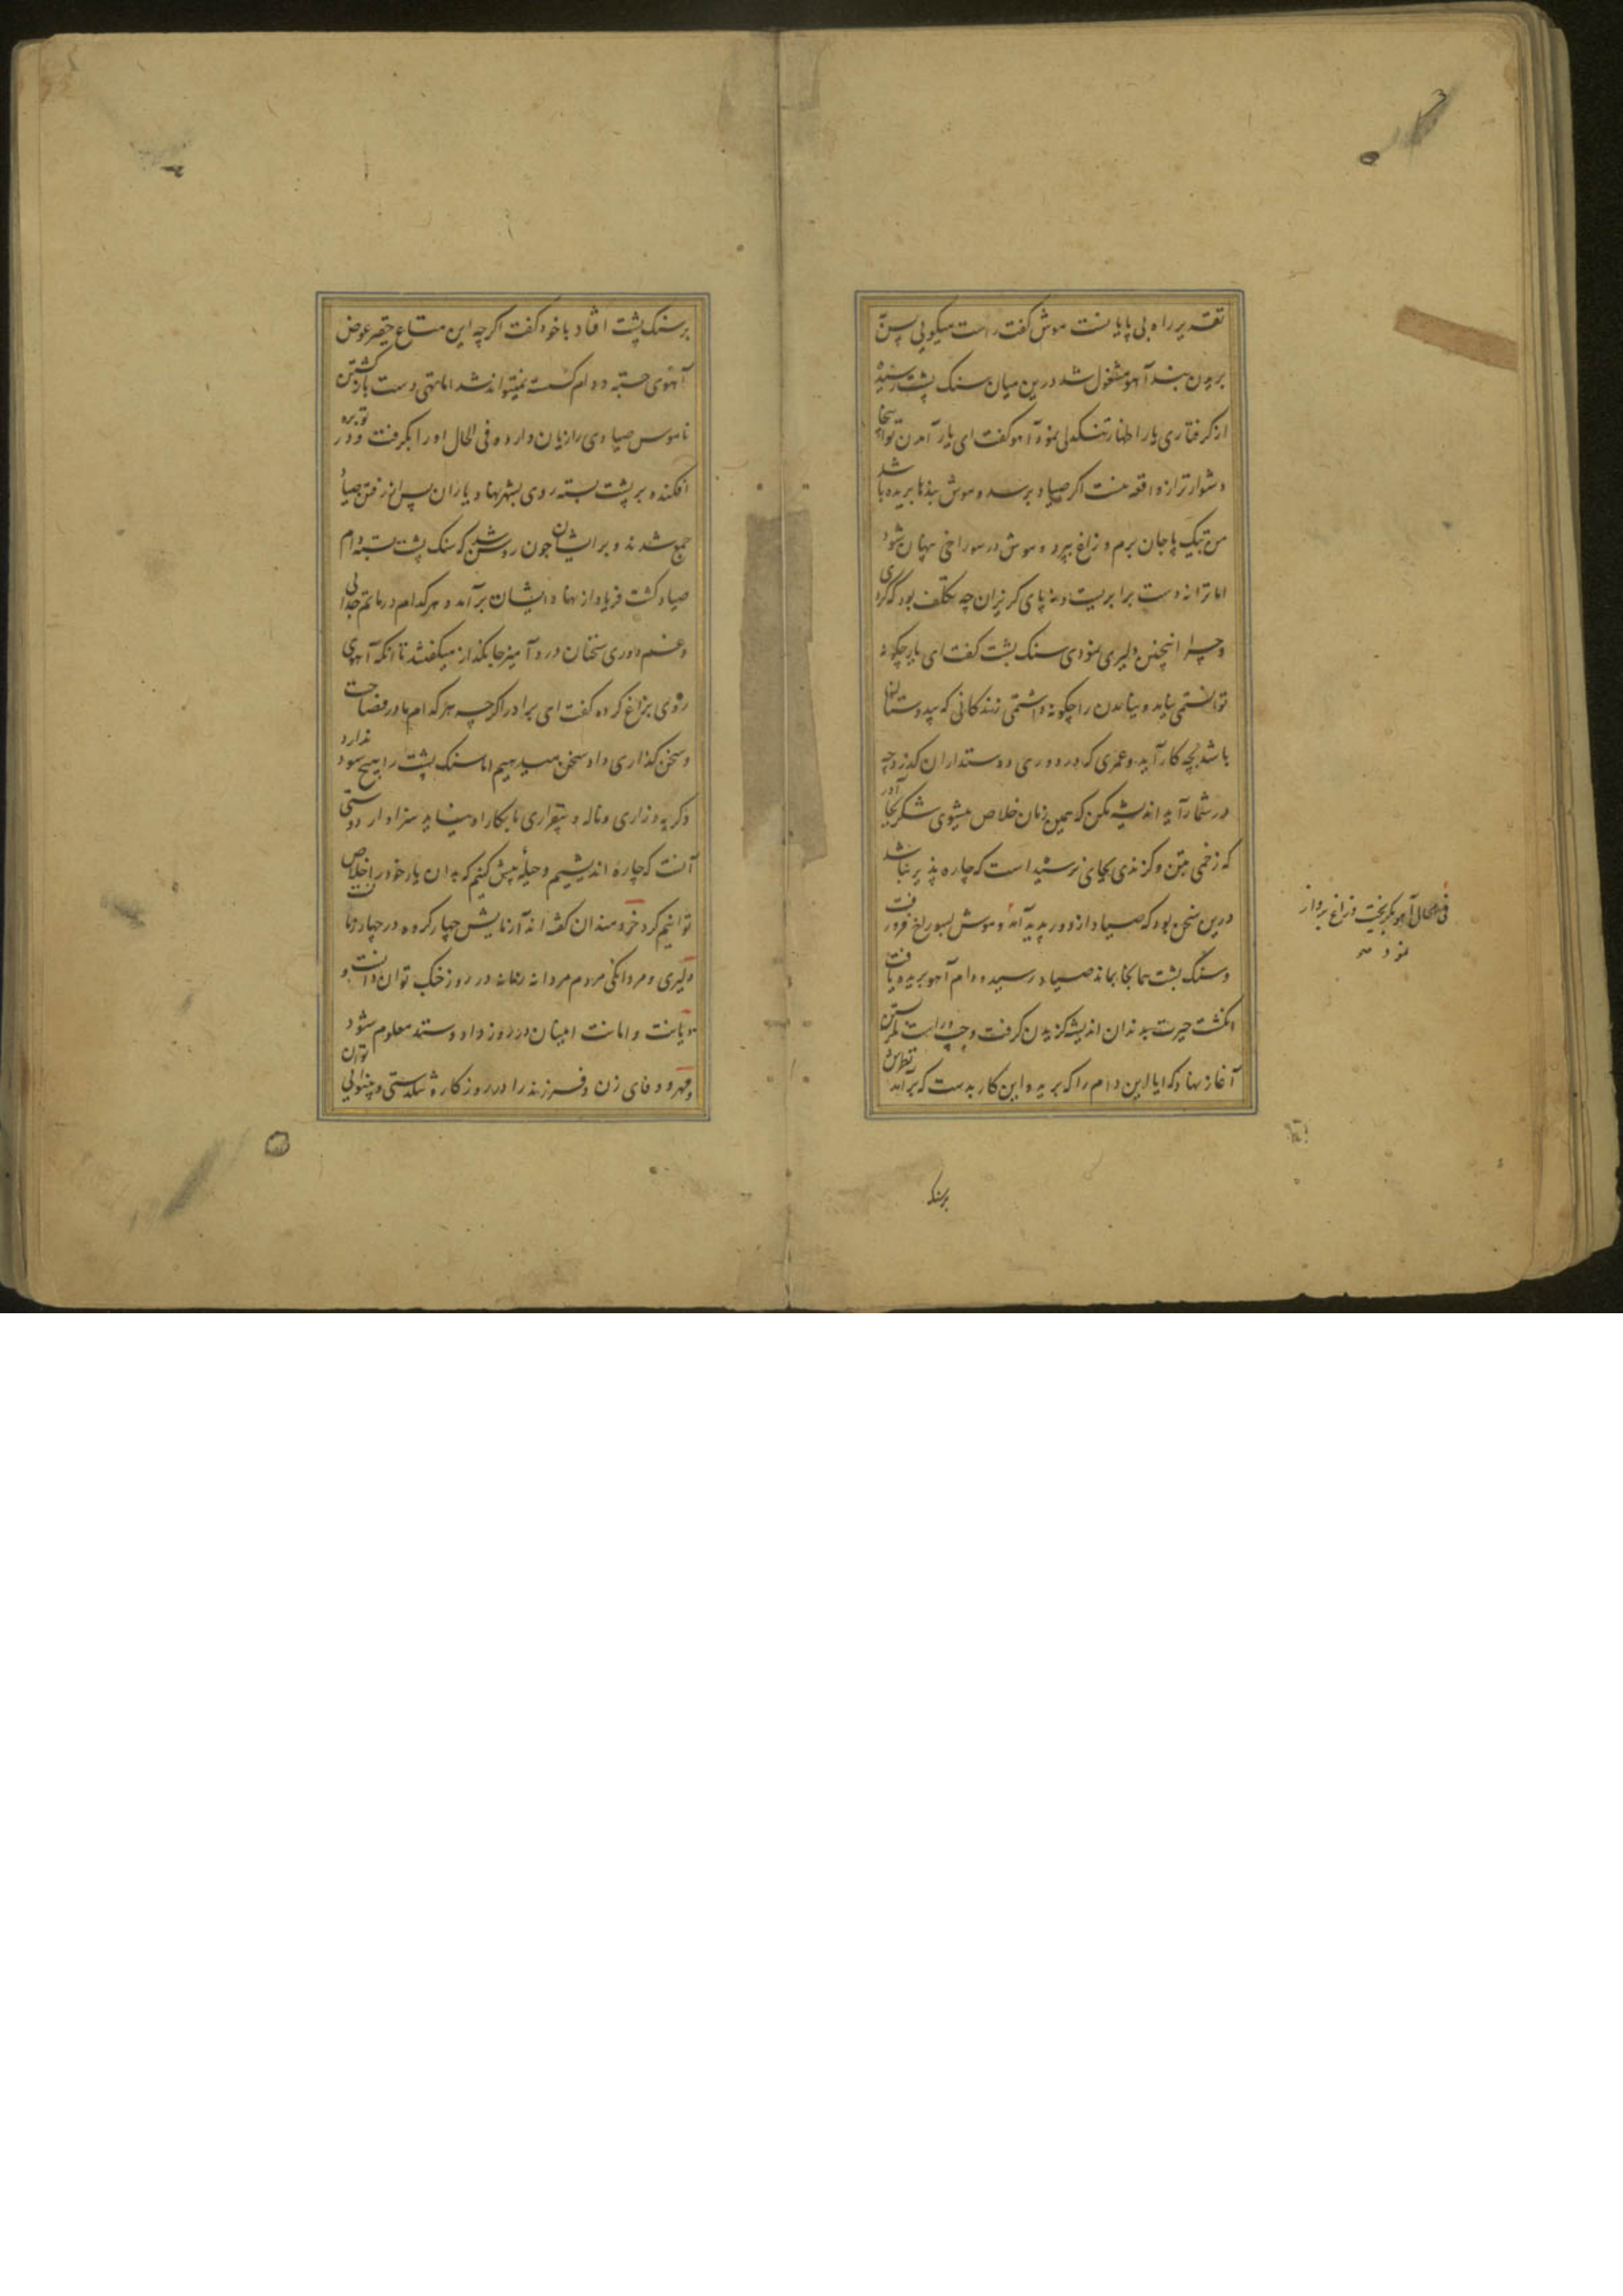 تقدیر راه بی پایانست موش گفت راست میکویی پس
بریدن بند آهو مشغول شد درین میان سنک پشت رسید
از کرفتاری یار اظهار تنکدلی نمود آهو گفت ای یار آمدن تو اینجا
دشوارتر از واقعه منست اکر صیاد برسد و موش بندها بریده باشد
من بتک پا جان برم و زاغ بپرد و موش در سوراخی پنهان شود
اما ترا نه دست برابریست و نه پای کریزان چه تکلف بود که کردی
و چرا اینچنین دلیری نمودی سنک پشت گفت ای یار چکونه
توانستمی نیامد و نیامدن را چکونه داشتمی زندکانی که بیدوستان
باشد بچه کار آید و عمری که در دوری دوستداران کذرد چه
در شمار آید اندیشه مکن که همین زمان خلاص میشوی شکر بجا آور
که زخمی بتن و کزندی بجای نرسیده است که چاره پذیر نباشد
درین سخن بود که صیاد از دور پدید آمد و موش بسوراخ فرو رفت
فی الحال آهو بکریخت و زاغ پرواز
نمود صح
و سنک پشت همانجا بماند صیاد رسید و دام آهو بریده یافت
انکشت حیرت بدندان اندیشه کزیدن کرفت و چپ و راست نکریستن
آغاز نهاد که آیا این دام را که برید و این کار بدست که برآمد نظرش
برسنک
برسنک پشت افتاد با خود گفت اکرچه این متاع حقیر عوض
آهوی جسته و دام کسسته نمیتواند شد اما تهی دست بازکشتن
ناموس صیادی را زیان دارد و فی الحال او را بکرفت و در توبره
افکند و بر پشت بسته روی بشهر نهاد یاران پس از رفتن صیاد
جمع شدند و برایشان چون روشن شد که سنک پشت بسته دام
صیاد کشت فریاد از نهاد ایشان برآمد و هر کدام در ماتم جدایی
و غم دوری سخنان درد آمیز جانکداز میکفتند تا آنکه آهوی
روی بزاغ کرده گفت ای برادر اکرچه هر کدام ما در فصاحت
و سخن کذاری داد سخن میدهیم اما سنک پشت را هیچ سود ندارد
و کریه و زاری و ناله و بیقراری ما بکار او نمیاید سزاوار دوستی
آنست که چارهٔ اندیشیم و حیلهٔ پیش کنیم که بدان یار خود را خلاص
توانیم کرد خردمندان کفته اند آزمایش چهار کروه در چهار وقت
دلیری و مردانکی مردم مردانه را در روز جنک توان دانست و
دیانت و امانت امینان در روز داد و ستد معلوم شود
و مهر و وفای زن و فرزند را در روزکار تنکدستی و بینوایی توان